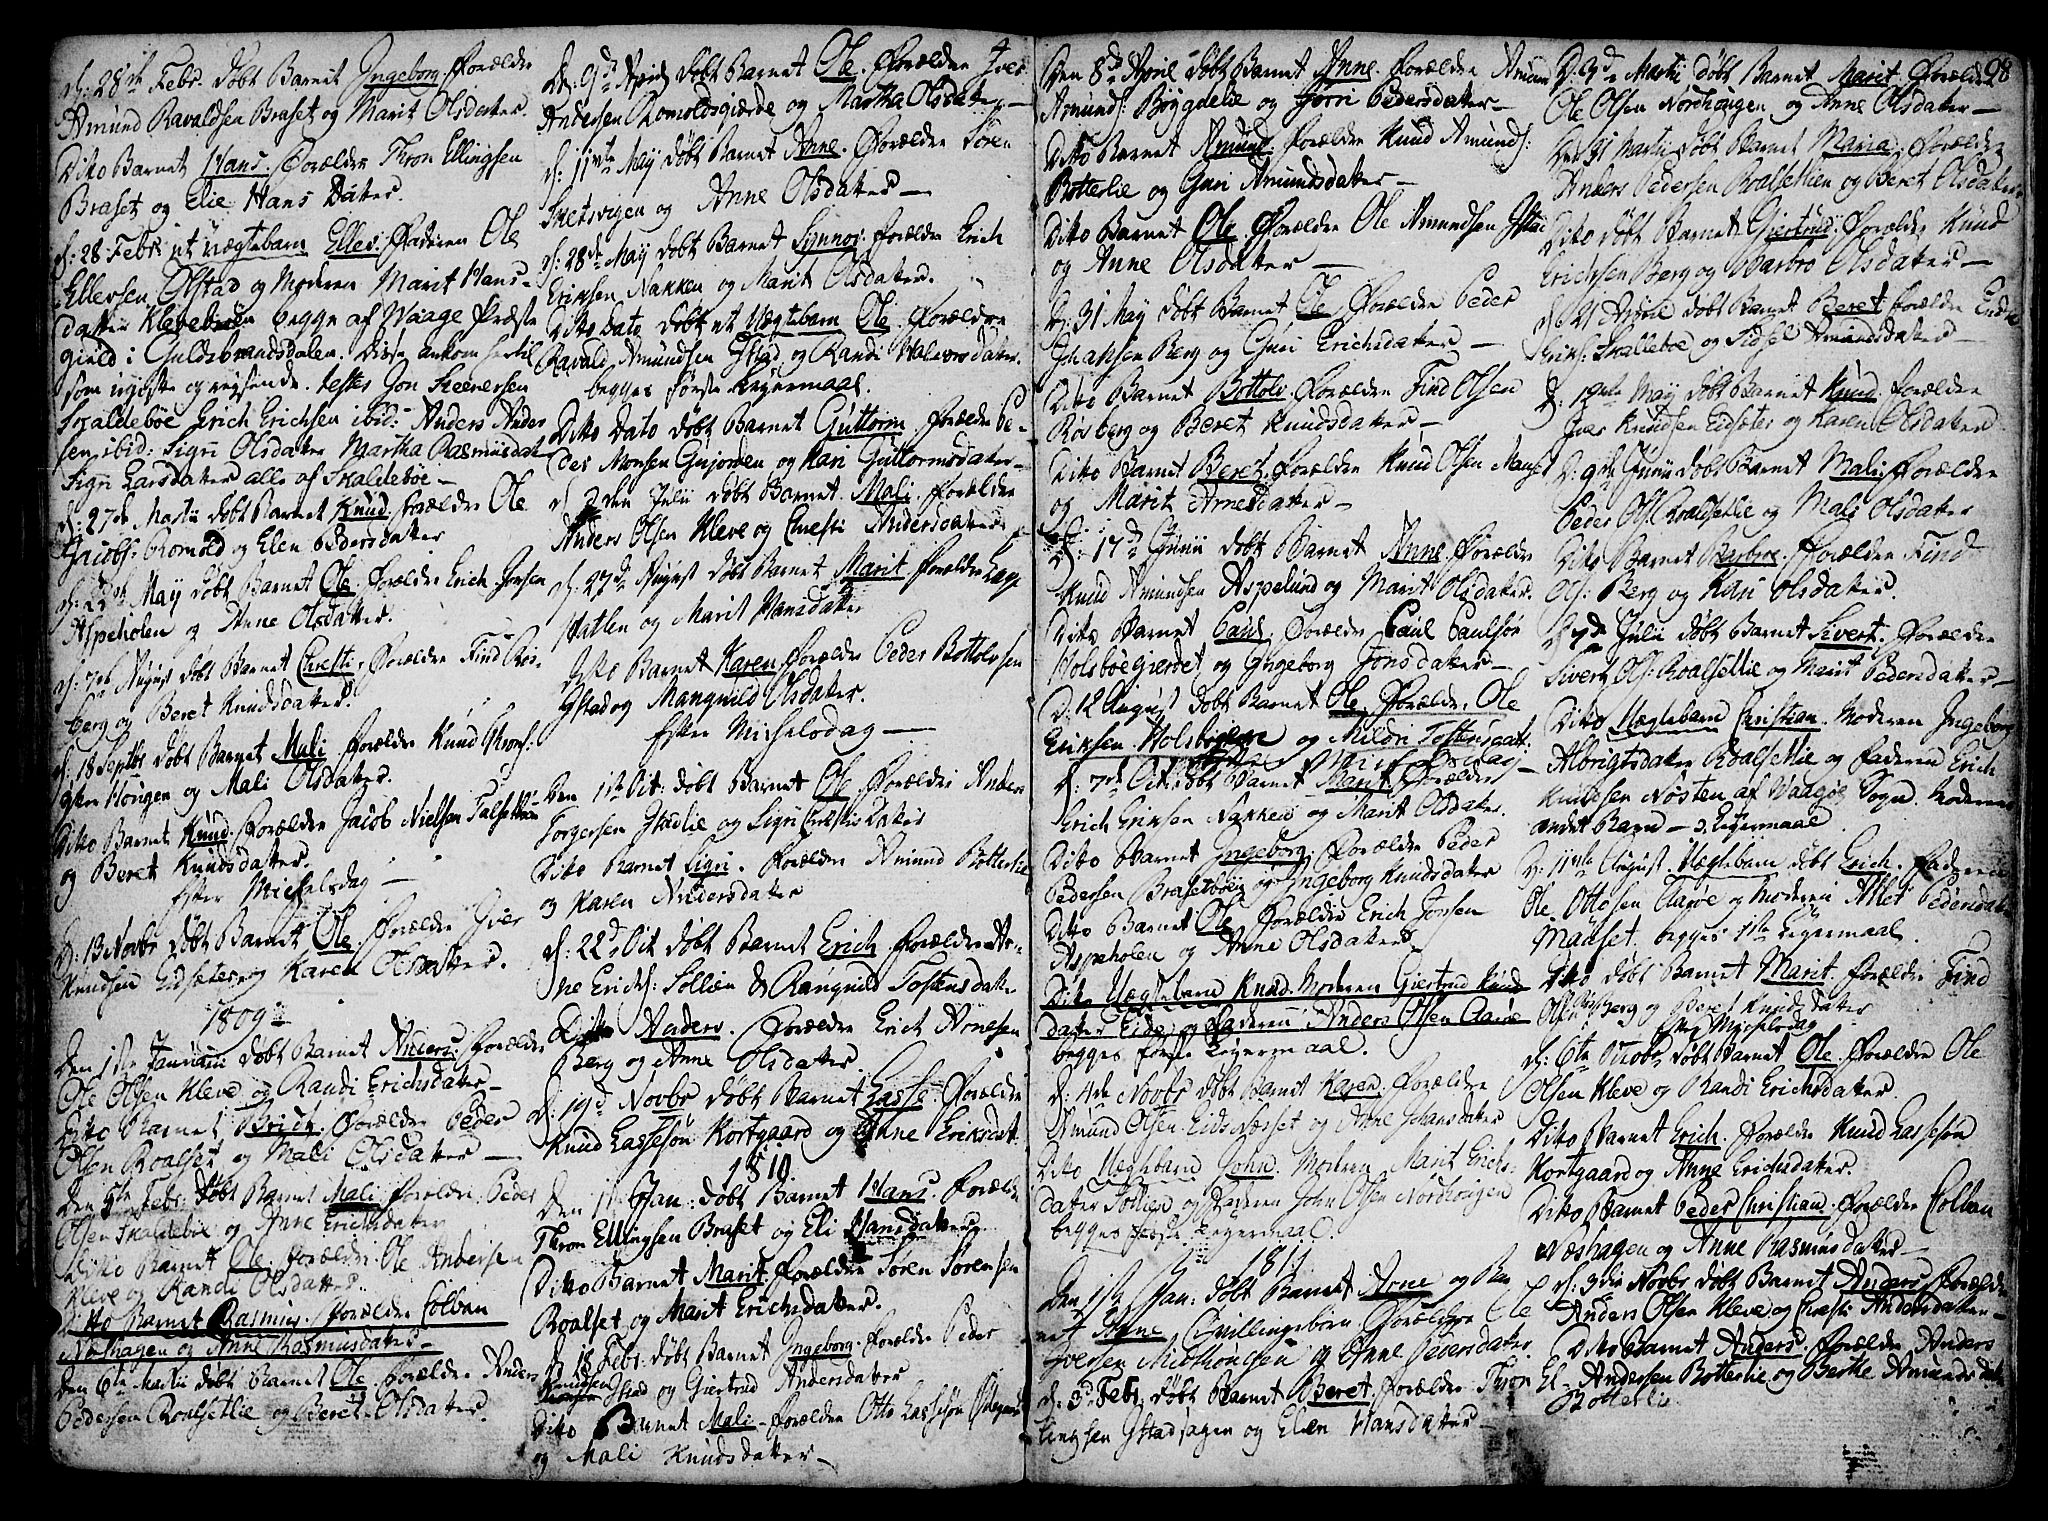 d: 28de Febr. døbt Barnet Ingeborg. Forældre
Amund Ravaldsen Braset og Marit Olsdater.
Dito Barnet Hans. Forældre Thron Ellingsen
Braset og Elie Hans Dater.
d: 28 Febr: et uægtebarn Elles. Faderen Ole
Ellersen Olstad og Moderen Marit Hans-
datter Kleven begge af Waage Præste
gield i Guldsbrandsdalen. Disse ankom hertil
som ugifte og reysende. testes Jon Steenersen
Skaldebøe Erich Erichsen ibid: Anders Ander
sen ibid: Sigri Olsdater Martha Rasmusdater
Signi Larsdater alle af Skaldebøe —
d: 27de Martii døbt Barnet Knud. Forældre Ole
Jacobs: Romold og Elen Pedersdater
d: May døbt Barnet Ole. Forældre Erich Jonsen
Aspeholen og Anne Olsdater.
d: 7de August døbt Barnet Chresti, Forældre Find Ros-
berg og Beret Knudsdater.
d: 18 Septbr døbt Barnet Mali Forældre Knud Throns:
Hougen og Mali Olsdater.
Dito Barnet Knud. Forældre Jacob Nielsen Talsethie
og Beret Knudsdater.
Efter Michelsdag —
D: 13 Novbr døbt Barnet Ole. Forældre Iver
Knudsen Eidsæter og Karen Olsdater.
1809
Den 1ste Januarii døbt Barnet Anders. Forældre
Ole Olsen Kleve og Randi Erichsdater —
Dito Barnet Brith. Forældre Peder
Olsen Roalset og Mali Olsdater —
Den 5te Febr: døbt Barnet Mali Forældre Peder
Olsen Skaldebøe og Anne Erichsdater
Dito Barnet Ole. Forældre Ole Andersen
Kleve og Randi Olsdatter.
Ditto Barnet Rasmus. Forældre Colban
Næshagen og Anne Rasmusdater —
den 6te Martii døbt Barnet Ole. Forældre Anders
Pedersen Roalsetlie og Beret Olsdater.
D: 9de April døbt Barnet Ole. Forældre Iver
Andersen Romoldsgierde og Martha Olsdater —
d: 11te May døbt Barnet Anne. Forældre Søren
og Anne Olsdater —
d: 28de May døbt Barnet Synnov. Forældre Erich
Eriksen Nakken og Marit Olsdater.
Dito Dato døbt et Uægtebarn Ole. Forældre
Ravald Amundsen Ystad og Randi Halvorsdater.
begges første Leyermaal.
Dito Dato døbt Barnet Guttorm. Forældre Pe-
der Monsen Gujorden og Kari Guttormsdater —
d: 2den Julii døbt Barnet Mali. Forældre
Anders Olsen Kleve og Chresti Andersdater
d: 27de August døbt Barnet Marit Forældre Lars
Hatlen og Marit Hansdater
Dito Barnet Karen. Forældre Peder Bottolvsen
Ystad og Manquild Olsdater.
Efter Michelsdag —
Den 1ste Oct: døbt Barnet Ole Forældre Anders
Torgersen Istadlie og Sigri Chrestis Dater
Dito Barnet Sigri. Forældre Amund Botterlie
og Karen Andersdater
d: 22d Oct døbt Barnet Erich Forældre Ar-
ne Erichs: Sollien & Rangnild Tostensdater
Ditto Anders. Forældre Erich Arnesen
Berg og Anne Olsdater.
d: 19d Novbr døbt Barnet Lasse. Forældre
Knud Lassesøn Kortgaard og Anne Eriksdat.
1810
Den 1ste Jan: døbt Barnet Hans. Forældre
Thron Ellingsen Braset og Eli Hansdater.
Dito Barnet Marit. Forældre Søren Sørensen
Roalset og Marit Erichsdater.
d: 18 Febr: døbt Barnet Ingeborg. Forældre Peder
Knudsen Istad og Giertrud Andersdater
Dito Barnet Mali — Forældre Otto Lassesøn
og Mali Knudsdater —
Den 8de April døbt Barnet Anne. Forældre Amun
Amunds: Bøygdelie og Jorri Pedersdater —
Dito Barnet Amund. Forældre Knud Amunds:
Botterlie og Guri Amundsdater —
Dito Barnet Ole. Forældre Ole Amundsen Ystad
og Anne Olsdater —
D: 31 May døbt Barnet Ole. Forældre Peder
Johansen Berg og Guri Erichsdater —
Dito Barnet Bottolv. Forældre Find Olsen
Rosberg og Beret Knudsdater —
Dito Barnet Beret. Forældre Knud Olsen Mauset
og Marit Arnesdater —
D: 17de Junii døbt Barnet Anne. Forældre
Knud Amundsen Aspelund og Marit Olsdater.
Dito Barnet Paul. Forældre Paul Paulsøn
Holsbøegierdet og Ingeborg Jonsdater —
D: 12 August døbt Barnet Ole. Forældre Ole
Eriksen Holsbøe og Mildri Tostensdat:
d: 7de Oct: døbt Barnet Marit. Forældre
Erich Eriksen Nakken og Marit Olsdater.
Dito Barnet Ingeborg. Forældre Peder
Pedersen Brasetbøen og Ingeborg Knudsdater
Dito Barnet Ole. Forældre Erich Jonsen
Aspeholen og Anne Olsdater.
Dito Uægtebarn Knud. Moderen Giertrud Knud
dater Eide og Faderen Anders Olsen Aarøe
begges første Leyermaal.
d: 4de Novbr døbt Barnet Karen. Forældre
Amund Olsen Eidsnæsset og Anne Johansdater
Dito Uægtebarn John. Moderen Marit Erichs-
dater Sollien og Faderen John Olsen Nordhougen
begges første Leyermaal.
1811
Den 1ste Jan: døbt Barnet Arne og Bar
net Anne Tvillingebørn. Forældre Ole
Iversen Midthougen og Anne Pedersdater.
d: 3d Febr. døbt Barnet Beret. Forældre Thron El-
lingsen Ystadhagen og Elen Hansdater —
98
D: 3de Martii døbt Barnet Marit. Forældre
Ole Olsen Nordhougen og Anne Olsdater —
Den 31 Martii døbt Barnet Maria. Forældre
Anders Pedersen Roalsetlien og Beret Olsdater
Dito døbt Barnet Giertrud. Forældre Knud
Erichsen Berg og Barbro Olsdater —
d: 21 Aprile døbt Barnet Beret. Forældre Endre
Eriks: Skalleboe og Sidsel Amundsdater —
d: 19de May døbt Barnet Knud. Forældre
Iver Knudsen Eidsæter og Karen Olsdater
D: 9de Junii døbt Barnet Mali. Forældre
Peder Ols: Roalsetlie og Mali Olsdater
Dito Barnet Barbroe. Forældre Find
Ols: Berg og Kari Olsdater.
d: 7de Julii døbt Barnet Sivert. Forældre
Sivert Ols: Roalsetlie og Marit Pedersdater —
Dito Uægtebarn Christian. Moderen Ingeborg
Albrigtsdater Roalsetlie og Faderen Erich
Knudsen Nøsten af Waagøe Sogn. Moderens
andet Barn — 2. Leyermaal
D: 11te August. Uægtebarn døbt Erich. Faderen
Ole Ottosen Aarøe og Moderen Allet Pedersdater
Mauset. begges 1ste Leyermaal.
Dito døbt Barnet Marit. Forældre Find
Olsen Rosberg og Beret Knudsdater
Efter Michelsdag
d: 6te Octobr. døbt Barnet Ole. Forældre Ole
Olsen Kleve og Randi Erichsdater.
Dito Barnet Erich. Forældre Knud Lassesøn
Kortgaard og Anne Erichsdater.
Dito Barnet Peder Christian. Forældre Colban
Næshagen og Anne Rasmusdater —
d: 3die Novbr døbt Barnet Anders. Forældre
Anders Olsen Kleve og Chresti Andersdater —
Dito Barnet Anders. Forældre Anders
Andersen Botterlie og Berthe Amundsdater
Botterlie